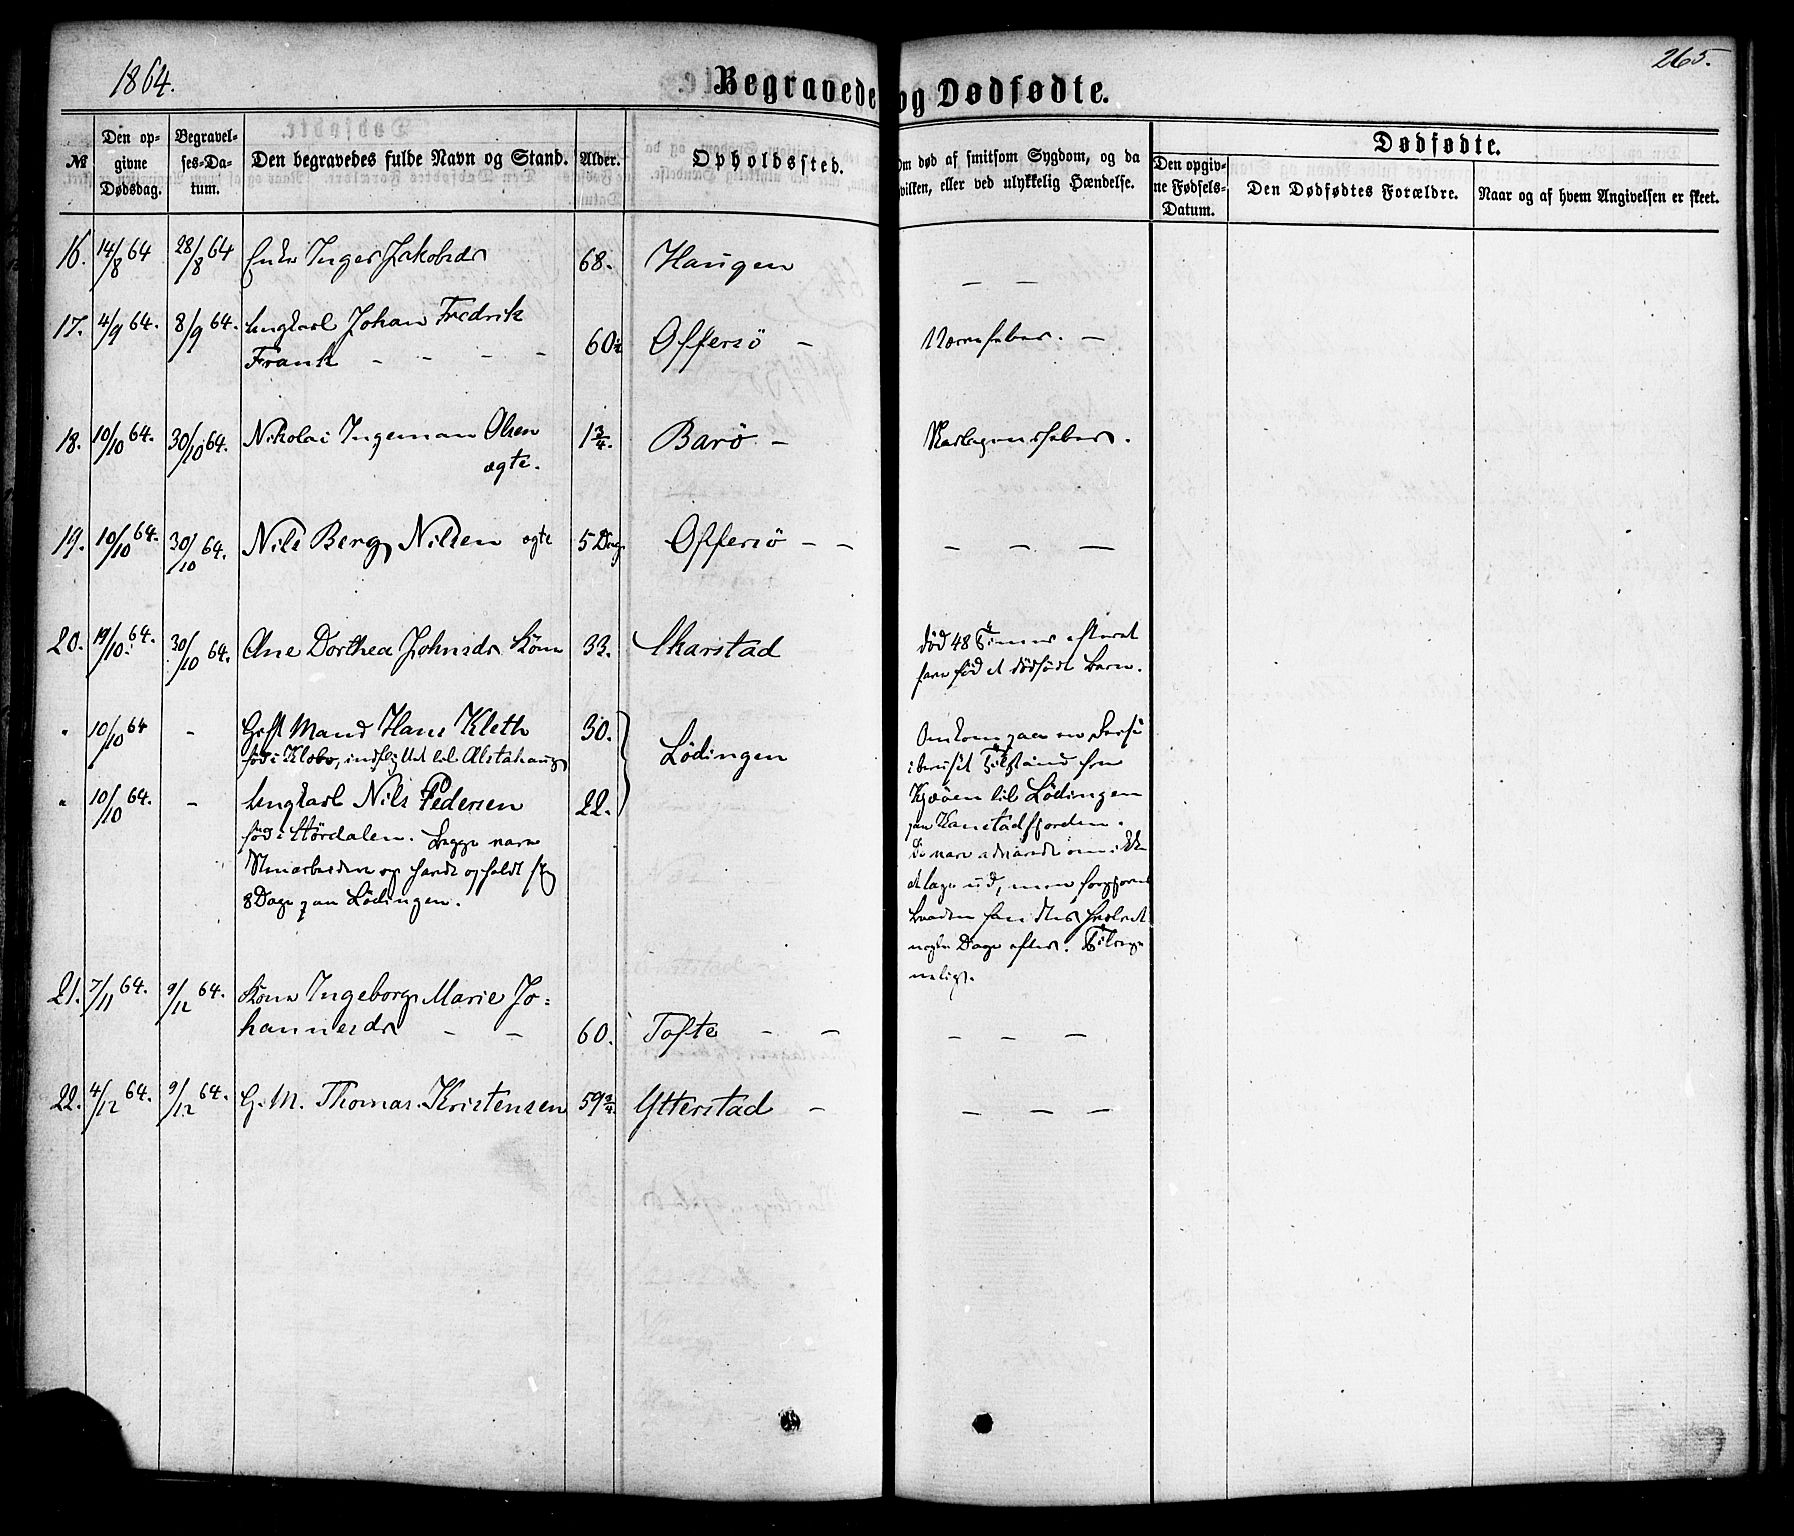 1864.
Begravede og Dødfødte.
265.
№
Den opgivne Dødsdag.
Begravelses-Datum.
Den begravedes fulde Navn og Stand.
Alder.
Opholdssted.
Om død af smitsom Sygdom, og da
hvilken, eller ved ulykkelig Hændelse.
Dødfødte.
Den opgivne Fødsels-Datum.
Den Dødfødtes Forældre.
Naar og af hvem Angivelsen er skeet.
16. 14/8 64 28/8 64 Enke Inger Jakobsdr 68. Haugen — —
17. 4/9 64. 8/9 64. Ungkarl Johan Fredrik
Frank - - - - 60 Offersö - Nervefeber. —
18. 10/10 64. 30/10 64. Nikolai Ingeman Olsen 1 3/4. Barö -
ægte.
19. 10/10 64. 30/10 64. Nils Berg Nilsen ægte 5 Dag Offersö - - — — —
20. 19/10 64. 30/10 64. Ane Dorthea Johnsdr Kone 33. Skarstad död 48 Timer efterat
have föd et dödfödt Barn.
" 10/10 64 - Gift Mand Hans Kleth 30.
föd i Klobo, indflyttet til Alstahaug
Lödingen
" 10/10 64. - Ungkarl Nils Pedersen 22.
föd i Stördalen. Begge vare
Minearbeidere og havde opholdt sig
8 Dage paa Lödingen.
Omkom paa en Reise
i beruset Tilstand fra
Kjøöen til Lödingen
paa Kanstadfjorden.
De vare advarede om ikke
at lage ud, men forgjæves
Baaden fandtes hvælvet
nogle Dage efter.
21. 7/11 64. 9/12 64. Kone Ingeborg Marie Jo=
hannesdr - - 60. Tofte - - — — —
22. 4/12 64. 9/12 64. G. M. Thomas Kristensen 59 3/4 Ytterstad - — — —